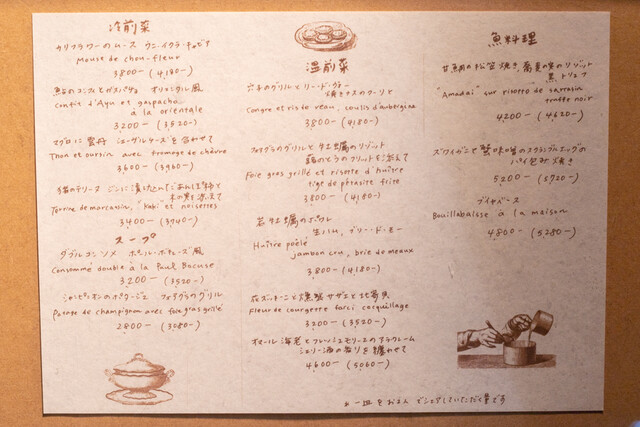 冷前菜
カリフラワーのムース ウニ・イクラ・キャビア
Mousse de chou-fleur
3800- (4,180-)
鮎のコンフィとガスパチョ オリエンタル風
Confit d'Ayu et gaspacho
à la orientale
3200- (3520-)
マグロに雲丹 シェーヴルチーズを合わせて
Thon et oursin avec fromage de chèvre
3600- (3960-)
猪のテリーヌ ジンに漬けこんだあんぽ柿と
木の実を添えて
Terrine de marcassin, "Kaki" et noisettes
3400- (3740-)
スープ
ダブルコンソメ ポール・ボキューズ風
Consommé double à la Paul Bocuse
3200- (3520-)
シャンピニオンのポタージュ フォアグラのグリル
Potage de champignon avec foie gras grillé
2800- (3080-)
温前菜
穴子のグリルとリー・ド・ヴォー
焼きナスのクーリと
Congre et ris de veau, coulis d'aubergine
3800- (4180-)
フォアグラのグリルと牡蠣のリゾット
Foie gras grillé et risotto d'huître
tige de pétasite frite
3800- (4180-)
岩牡蠣のポワレ
生ハム、ブリ・ド・モー
Huître poêlé
jambon cru, brie de meaux
3800- (4180-)
花ズッキーニと燻製サザエと
Fleur de courgette farci coquillage
3200- (3520-)
オマール海老とフレッシュモリーユのアラクレーム
シェリー酒の香りを纏わせて
4600- (5060-)
魚料理
甘鯛の松笠焼き 蕎麦の実のリゾット
黒トリュフ
"Amadai" sur risotto de sarrasin
truffe noir
4200- (4620-)
ズワイガニと蟹味噌のスクランブルエッグの
パイ包み焼き
5200- (5720-)
ブイヤベース
Bouillabaisse à la maison
4800- (5280-)
一皿をお2人でシェアしていただく量です